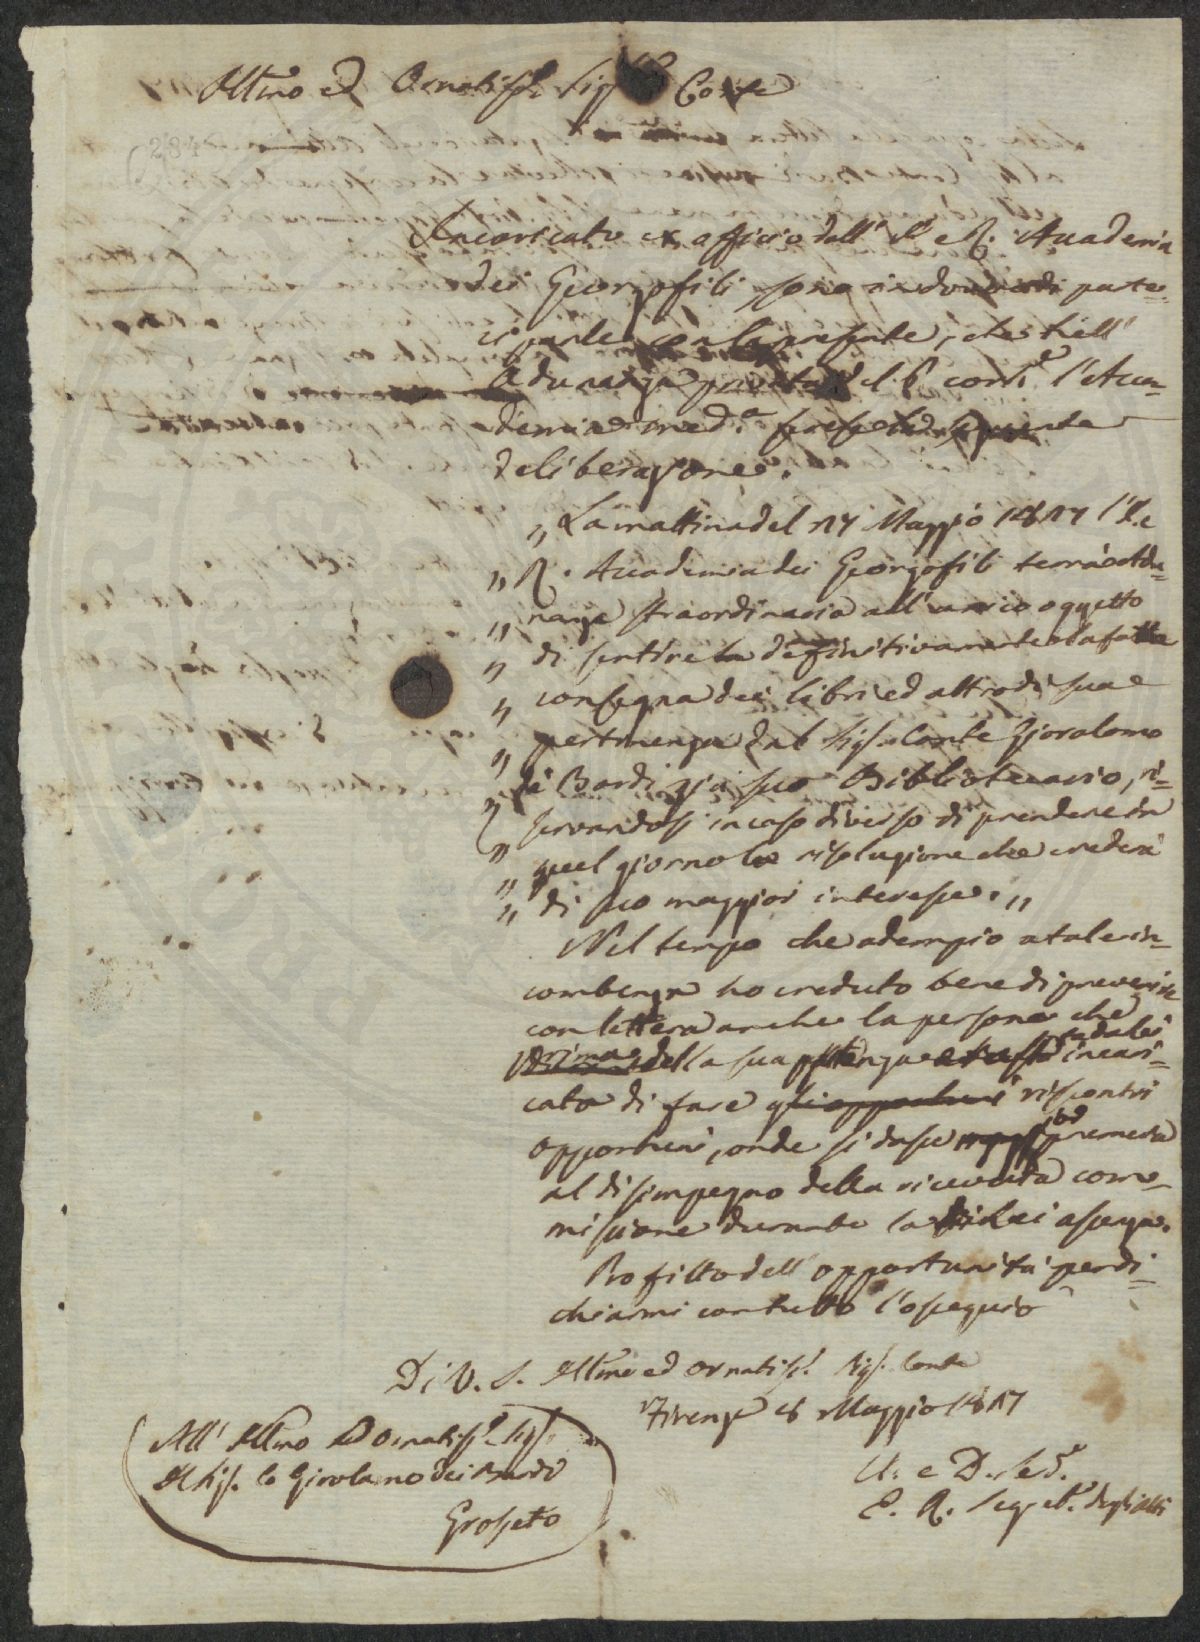 Illmo ed Ornatiss. Sigr. Conte
Incaricato ex officio dall' I. e R. Accademia
dei Georgofili sono in dovere di parte-
cipare, che nell'
Adunanza privata del 6 corr.e l'Acca-
demia med.a prese la seguente
deliberazione.
„ La mattina del 14 Maggio 1817 l'I. e
„ R. Accademia dei Georgofili terrà Adu-
„ nanza straordinaria all'unico oggetto
„ di sentire definitivamente la fatta
„ consegna dei libri ed altro di sua
„ pertinenza dal Sigr. Conte Girolamo
„ de Bardi già suo Bibliotecario, ri-
„ servandosi in caso diverso di prendere in
„ quel giorno la risoluzione che crederà
„ di suo maggior interesse. „
Nel tempo che adempio a tale in-
combenza ho creduto bene di prevenire
con lettera anche la persona che
prima della sua partenza da lei incari-
cata di fare gli opportuni riscontri
opportuni, onde si dasse premura
al disimpegno della ricevuta com-
missione durante la di Lei assenza.
Profitto dell' opportunità per di-
chiarmi con tutto l'ossequio
Di V. S. Illma ed Ornatiss. Sigr. Conte
Firenze 8 Maggio 1817
U. e D. Se.
E. R. Segret. degli Atti
All' Illmo ed Ornatiss. Sigr.
Il Sigr. Co Girolamo dei Bardi
Grosseto